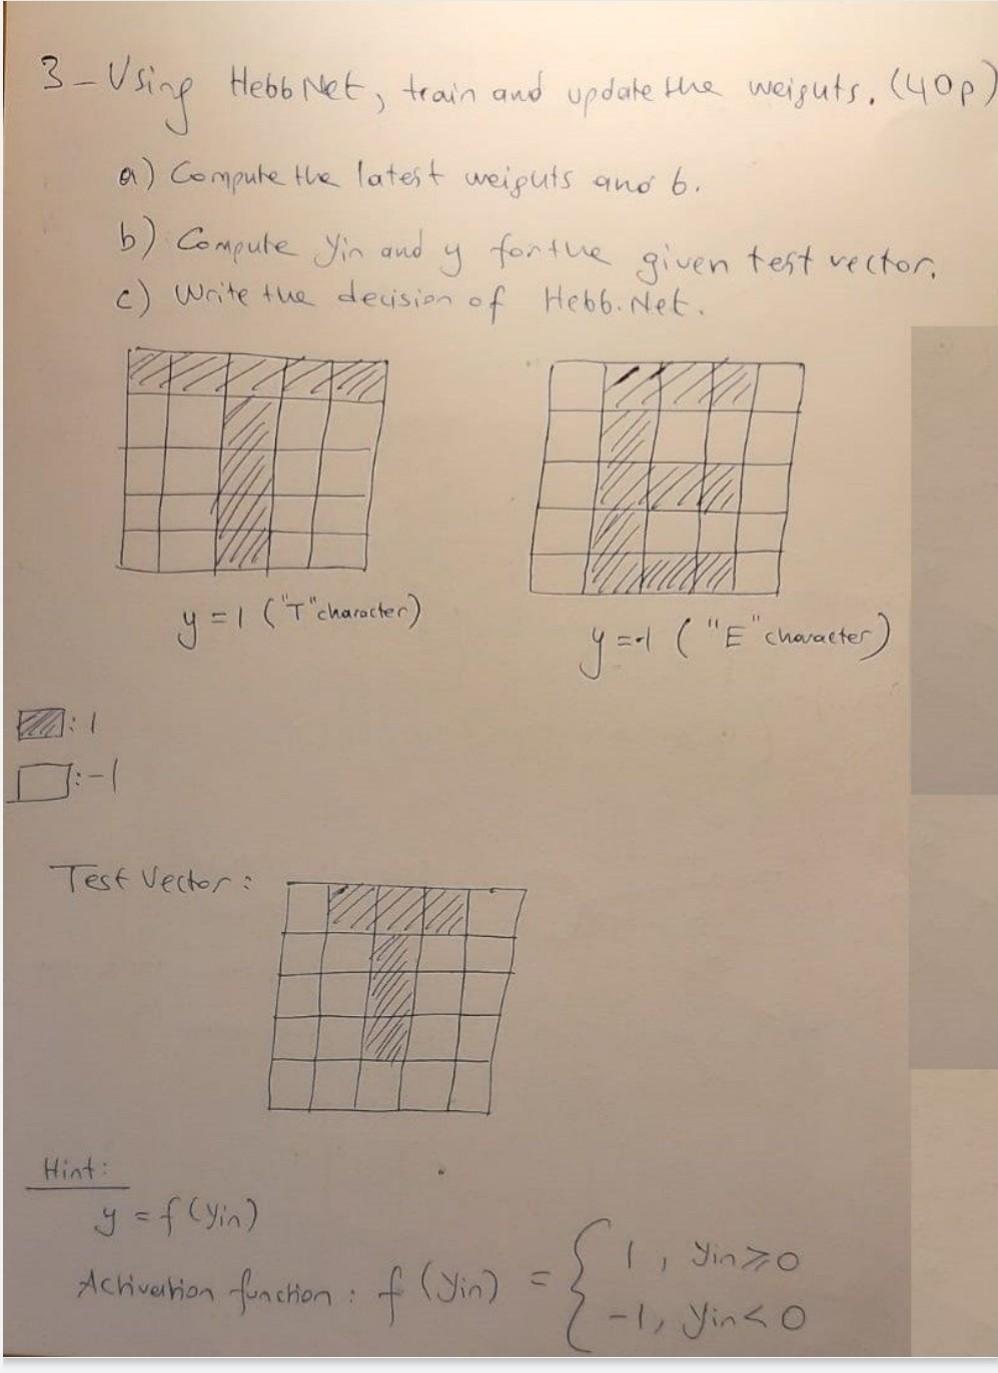 3-Using HebbNet, train and update the weiguts. (40p)
a) Compute the latest weiguts and b.
b) Compute yin and y for the given test vector.
c) Write the decision of Hebb.Net.
y = 1 ("T" character)
y = -1 ("E" character)
: 1
: -1
Test Vector:
Hint:
y = f(yin)
Activation function: f(yin) = { 1, yin ≥ 0
-1, yin < 0